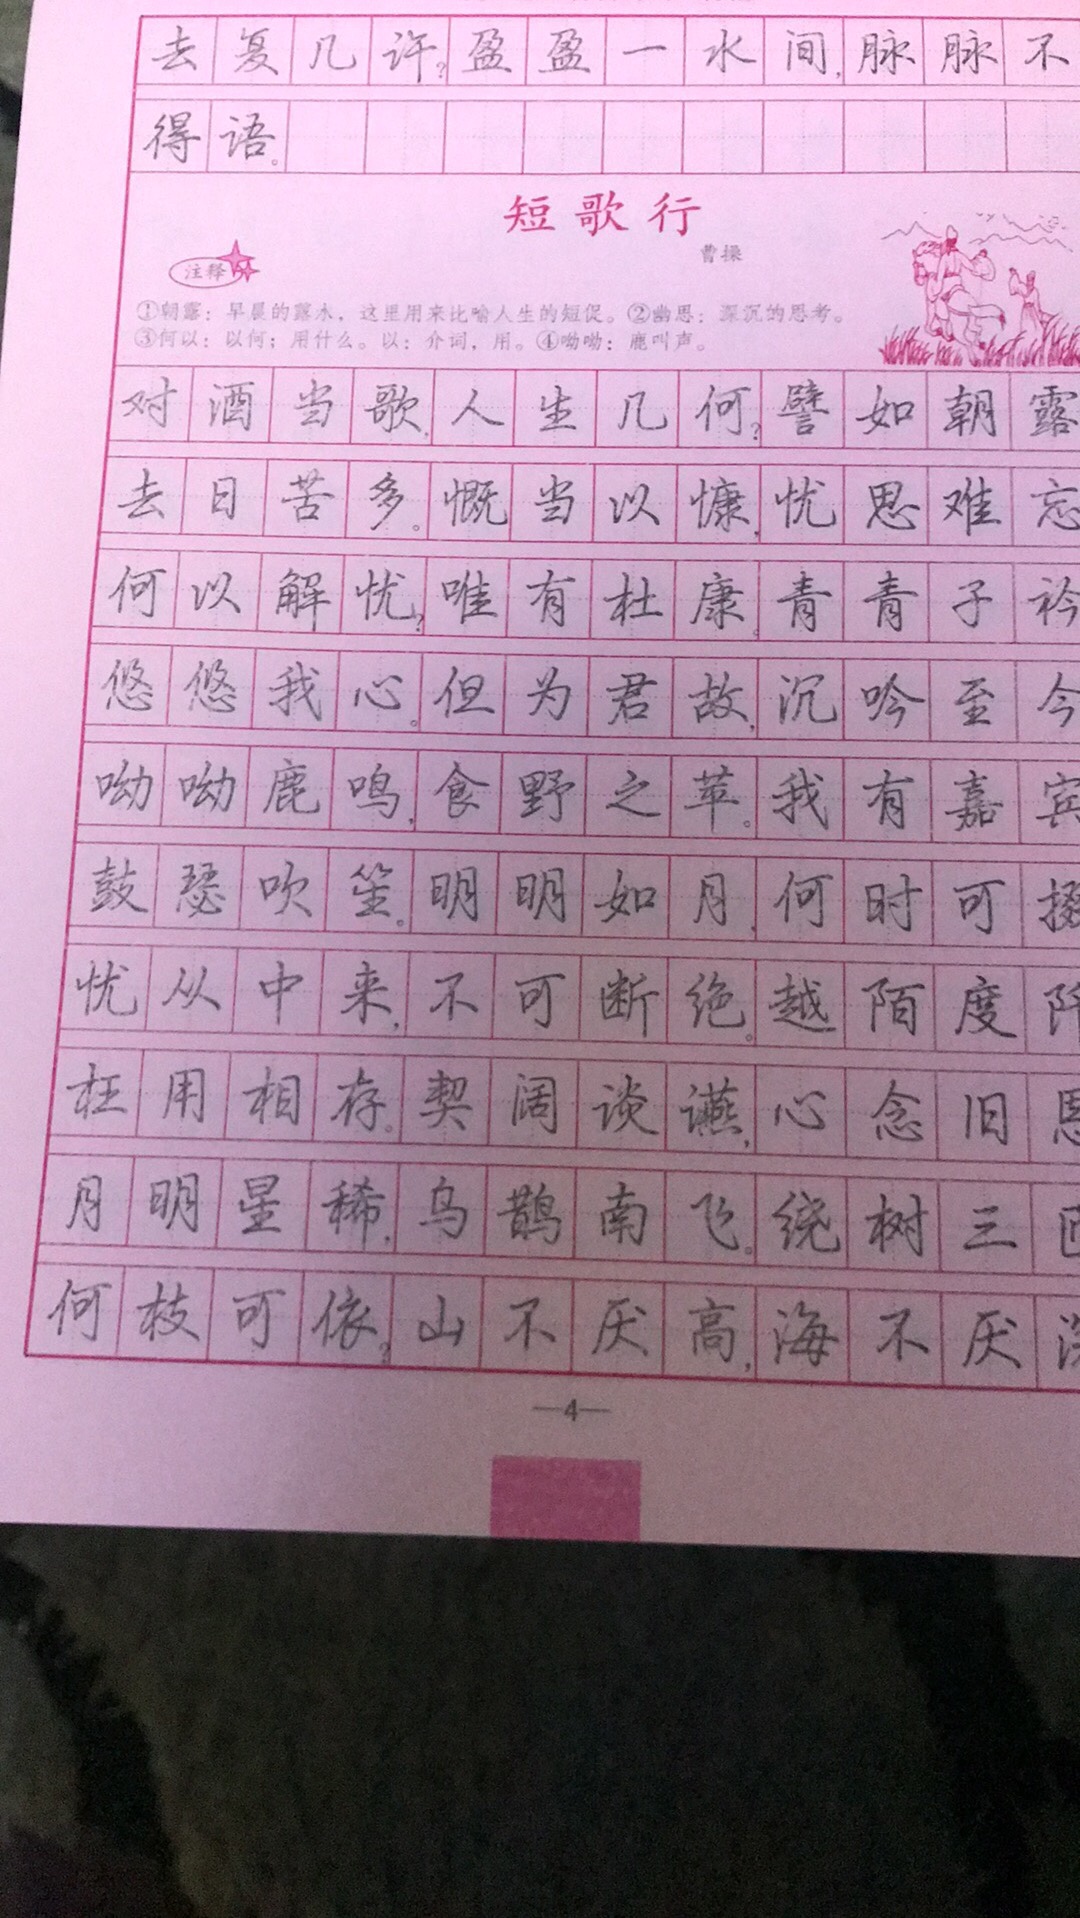 去复几许?盈盈一水间,脉脉不
得语。
短歌行
曹操
注释
①朝露:早晨的露水,这里用来比喻人生的短促。②幽思:深沉的思考。
③何以:以何;用什么。以:介词,用。④呦呦:鹿叫声。
对酒当歌,人生几何?譬如朝露
去日苦多。慨当以慷,忧思难忘
何以解忧?唯有杜康。青青子衿
悠悠我心。但为君故,沉吟至今
呦呦鹿鸣,食野之苹。我有嘉宾
鼓瑟吹笙。明明如月,何时可掇
忧从中来,不可断绝。越陌度阡
枉用相存。契阔谈䜩,心念旧恩
月明星稀,乌鹊南飞。绕树三匝
何枝可依?山不厌高,海不厌深
—4—